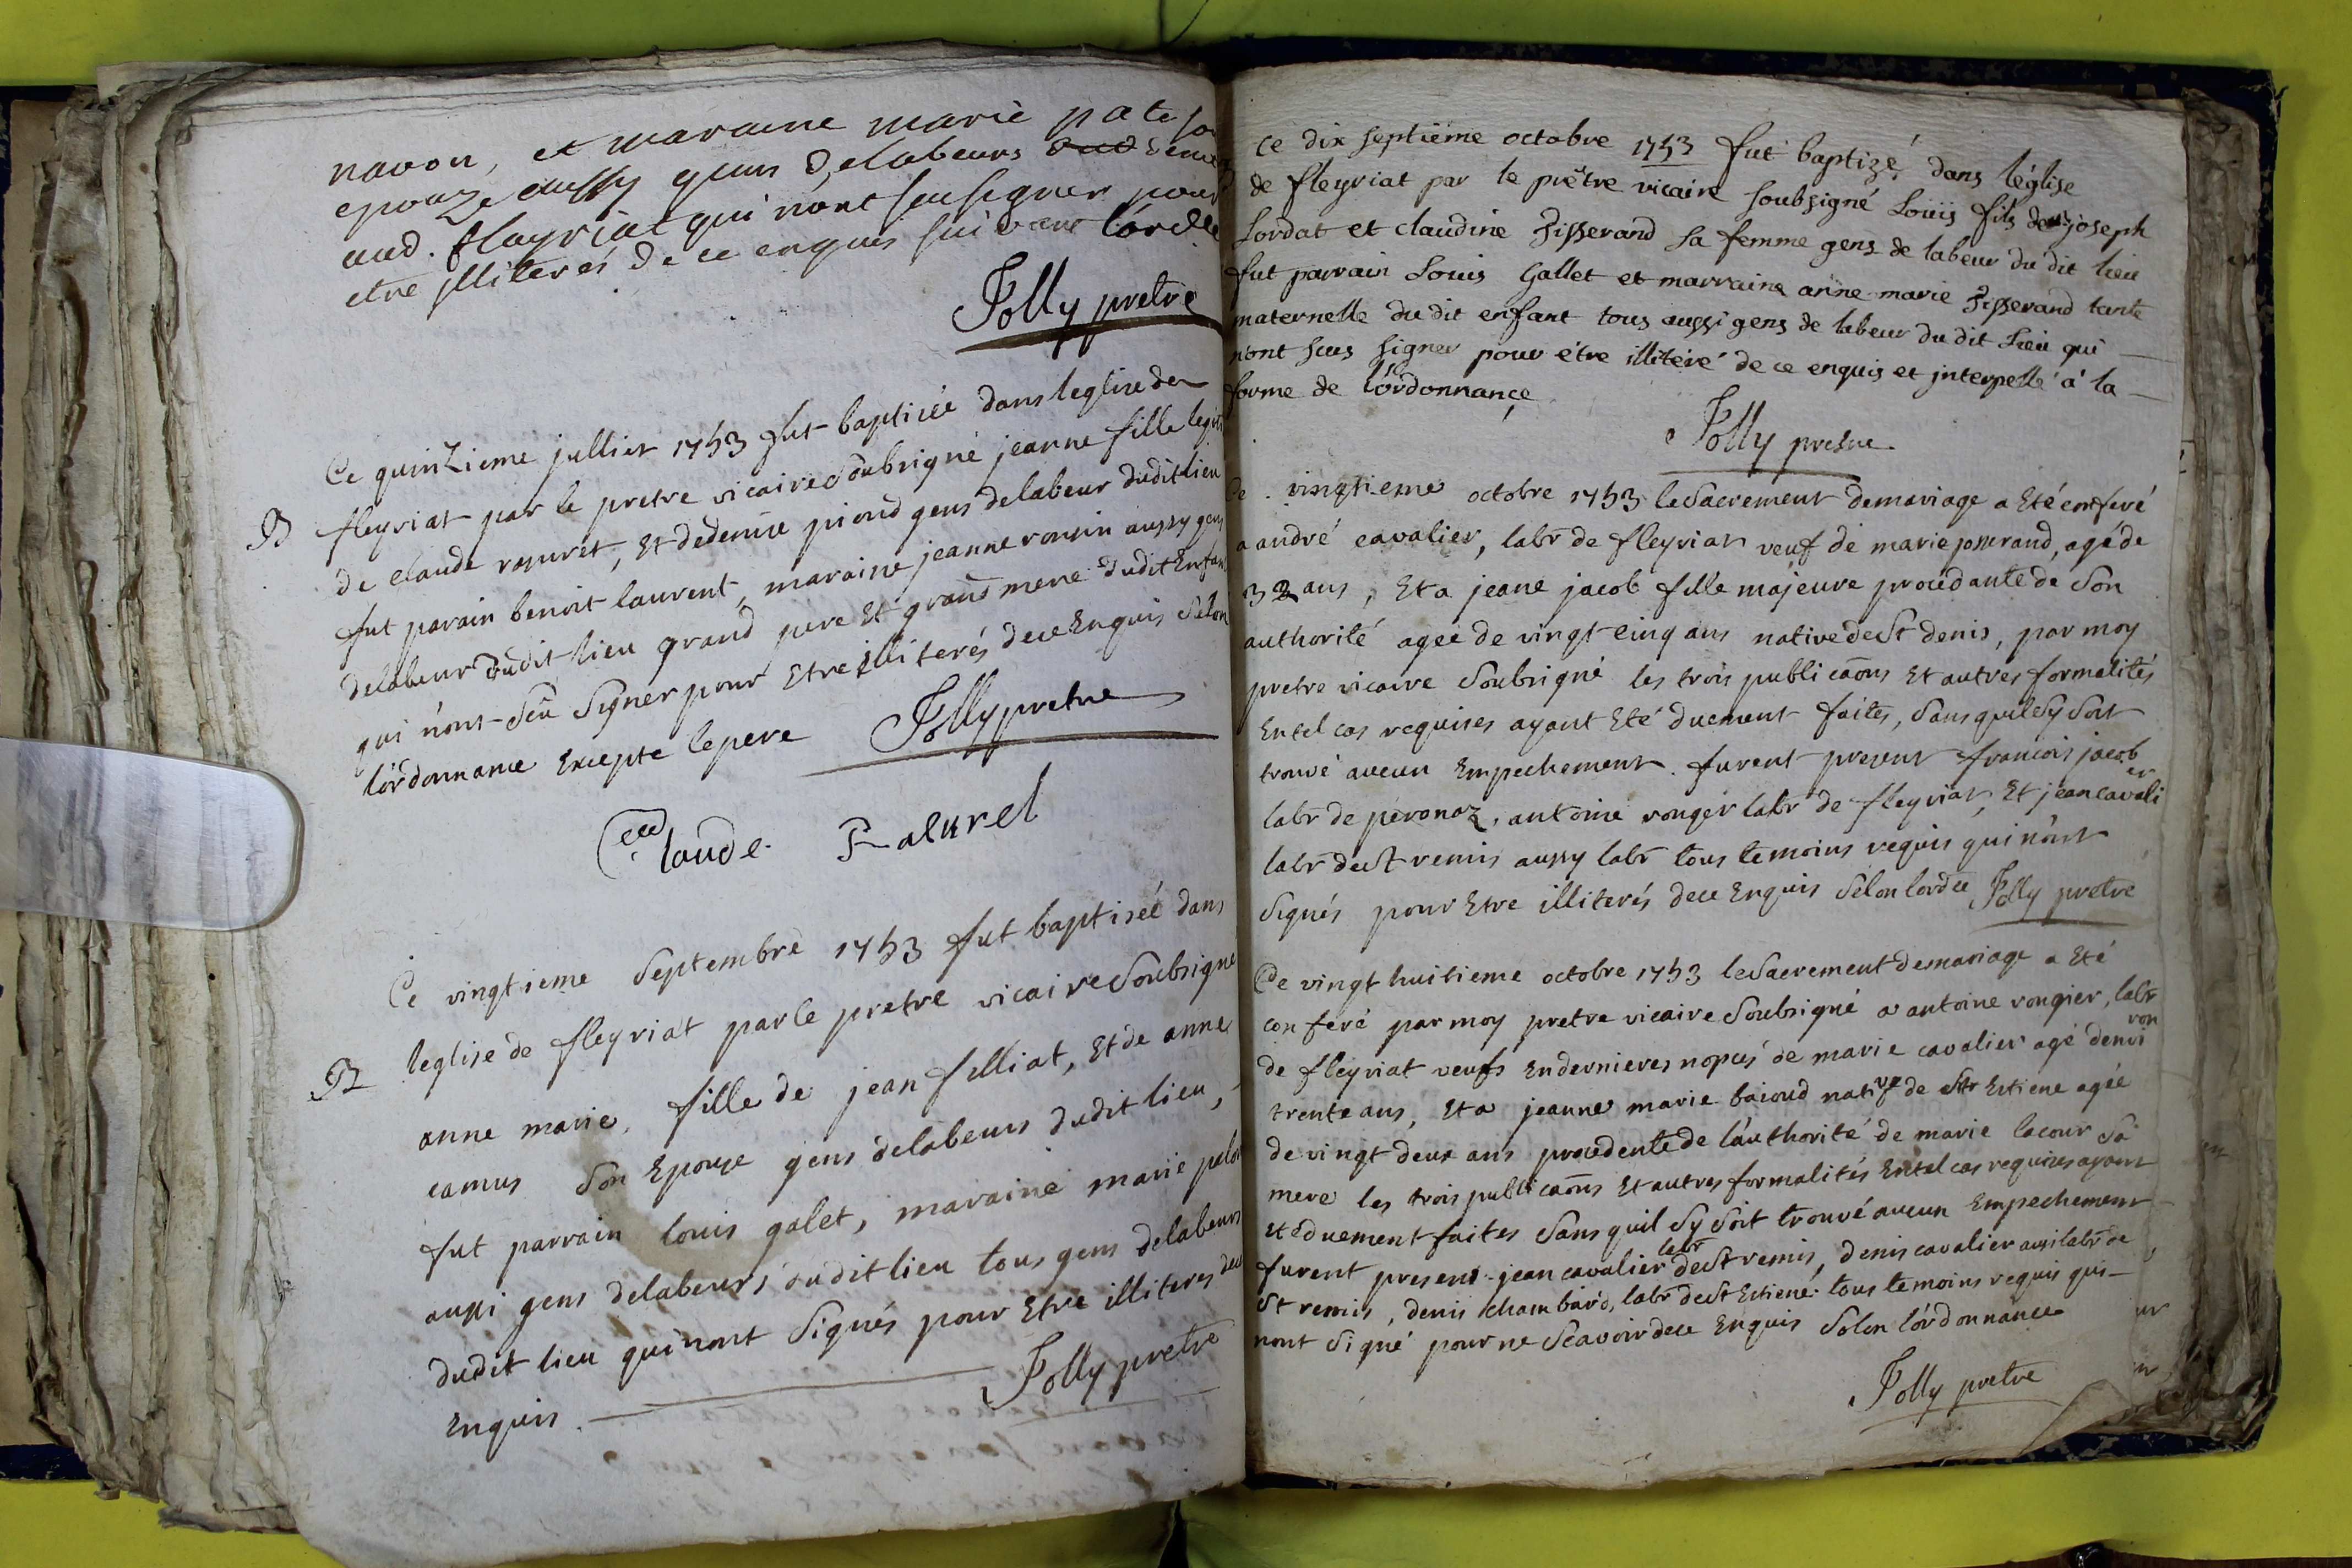 navon, et maraine marie pate son
epouze aussy gens delabeurs demeur
aud. fleyriat qui n'ont scu signer pour
etre illiterés de ce enquis suivant l'ordce
Jolly pretre
Ce quinzieme jullier 1753 fut baptisée dans leglise de
B
fleyriat par le pretre vicaire Soubsigné jeanne fille legit
de claude et dedenise gens delabeur dudit lieu
fut parain benoit laurent, maraine jeanne ronsin aussy gens
delabeur dudit lieu grand pere Et grand mere dudit Enfant
qui n'ont Sçu Signer pour Etre Illiterés dece Enquis Selon
lordonnance Excepté le pere Jolly pretre
Claude Raturel
Ce vingtieme Septembre 1753 fut baptisée dans
B
leglise de fleyriat par le pretre vicaire Soubsigné
anne marie, fille de jean filliat, Et de anne
camus Son Epouse gens delabeurs dudit lieu,
fut parrain louis galet, maraine marie
aussi gens delabeurs dudit lieu tous gens delabeurs
dudit lieu qui n'ont Signés pour Etre illiteres dece
Enquis. Jolly pretre
Ce dix septiême octobre 1753 fut baptizé dans léglise
de fleyriat par le prêtre vicaire soubsigné Louïs fils de joseph
Lordat et claudine Tisserand sa femme gens de labeur du dit lieu
fut parrain Louis Gallet et marraine anne marie Tisserand tante
maternelle du dit enfant tous aussi gens de labeur du dit Lieu qui
n'ont sçus signer pour être illiteré de ce enquis et interpellé à la
forme de l'ordonnançe
Jolly prestre
Ce vingtieme octobre 1753 le Sacrement demariage a Eté conferé
a andré cavalier, labr de fleyriat veuf de marie josserand, agé de
32 ans, Et a jeane jacob fille majeure procedante de Son
authorité agée de vingt cinq ans native de St denis, par moy
pretre vicaire Soubsigné les trois publicaōns Et autres formalités
En tel cas requises ayant Eté duement faites, Sans quil Sy Soit
trouvé aucun Empechement. furent present francois jacob
labr de peronaz, antoine rougér labr de fleyriat, Et jean cavalier
labr de St remis aussy labr tous temoins requis qui n'ont
Signés pour Etre illiterés dece Enquis Selon lordce Jolly pretre
Ce vingt huitieme octobre 1753 le Sacrement demariage a Eté
conferé par moy pretre vicaire Soubsigné a antoine rougier, labr
de fleyriat veufs Endernieres nopces de marie cavalier agé denviron
trente ans, Et a jeanne marie baioud native de St Estiene agée
de vingt deux ans procedente de l'authorité de marie lacour Sa
mere les trois publicaōns Et autres formalités En tel cas requises ayant
Eté duement faites Sans quil Sy Soit trouvé aucun Empechement
furent present jean cavalier labr de St remis, denis cavalier aussi labr de
St remis, denis chambard, labr de St Estiene tous temoins requis qui
n'ont Signé pour ne Scavoir dece Enquis Selon l'ordonnance
Jolly pretre